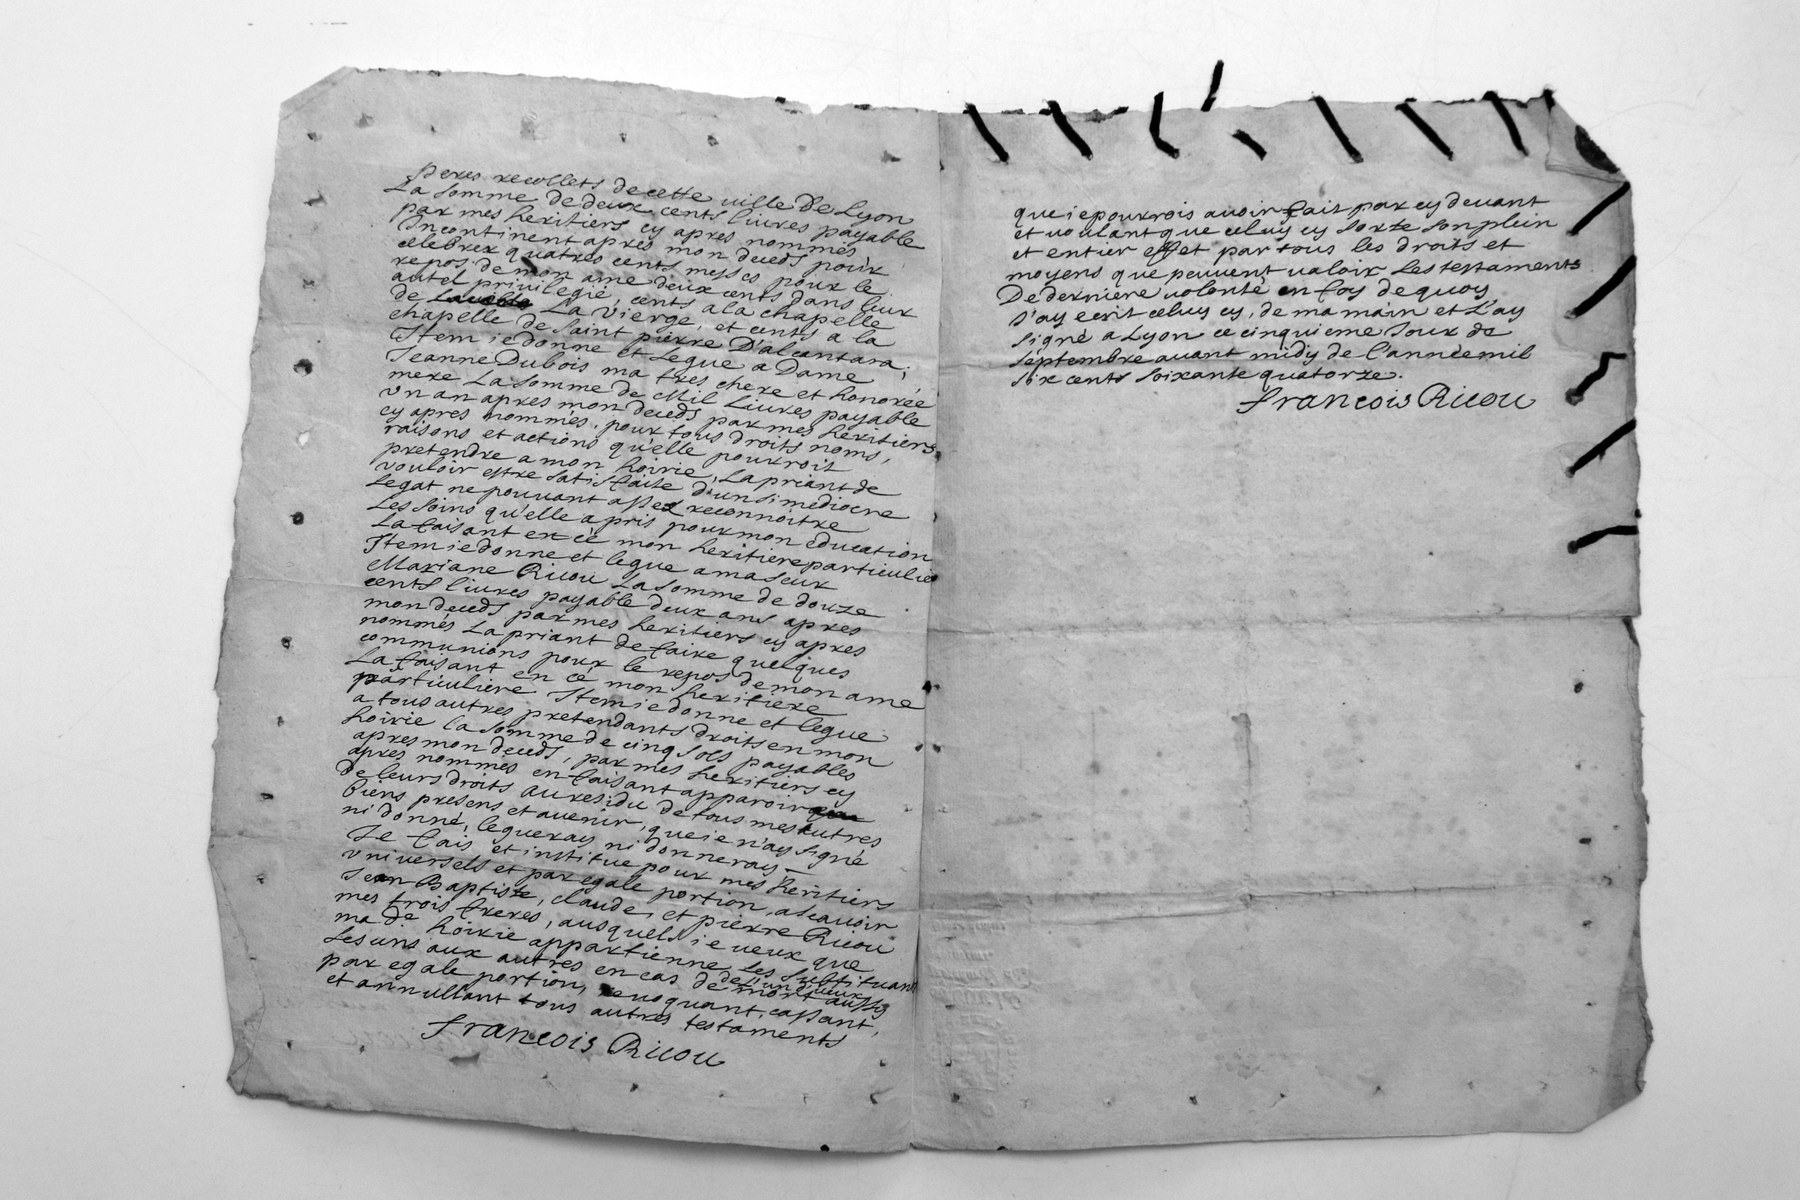 peres recollets de cette ville De Lyon
La somme de deux cents livres payable
par mes heritiers cy apres nommés
Incontinent apres mon deceds pour
celebrer quatres cents messes pour le
repos de mon ame deux cents dans leur
autel privilegié, cents a la chapelle
de La Vierge, et cents a la
chapelle de saint pierre D'alcantara,
Item ie donne et Legue a Dame
Jeanne Dubois ma tres chere et honorée
mere La somme de Mil Livres payable
vn an apres mon deceds par mes heritiers
cy apres nommés, pour tous droits noms,
raisons et actions qu'elle pourroit
pretendre a mon hoirie, La priant de
vouloir estre satisfaite d'un si mediocre
Legat ne pouvant assez reconnoitre
Les soins qu'elle a pris pour mon education
La faisant en cé mon heritiere particulie
Item ie donne et legue a ma seur
Mariane Ricou La somme de douze
cents livres payable deux ans apres
mon deceds par mes heritiers cy apres
nommés La priant de faire quelques
communions pour le repos de mon ame
La faisant en cé mon heritiere
particuliere Item ie donne et legue
a tous autres pretendants droits en mon
hoirie la somme de cinq sols payables
apres mon deceds, par mes heritiers cy
apres nommés en faisant apparoir
de leurs droits au residu de tous mes autres
biens presens et avenir, que ie n'ay signé
ni donné, legueray ni donneray
Je fais et institue pour mes heritiers
vniversels et par egale portion, ascavoir
Jean Baptiste, claude, et pierre Ricou
mes trois freres, ausquels ie veux que
ma de hoirie appartienne Les substituant
Les uns aux autres en cas de mort aussy
de l'un d'eux
par egale portion, revoquant, cassant,
et annullant tous autres testaments
francois Ricou
que ie pourrois avoir fait par cy devant
et voulant que celuy cy sorte son plein
et entier effet par tous les droits et
moyens que peuvent valoir Les testaments
De derniere volonté en foy de quoy
j'ay ecrit celuy cy, de ma main et L'ay
signé a Lyon ce cinquieme Jour de
septembre avant midy de l'année mil
six cents soixante quatorze.
francois Ricou